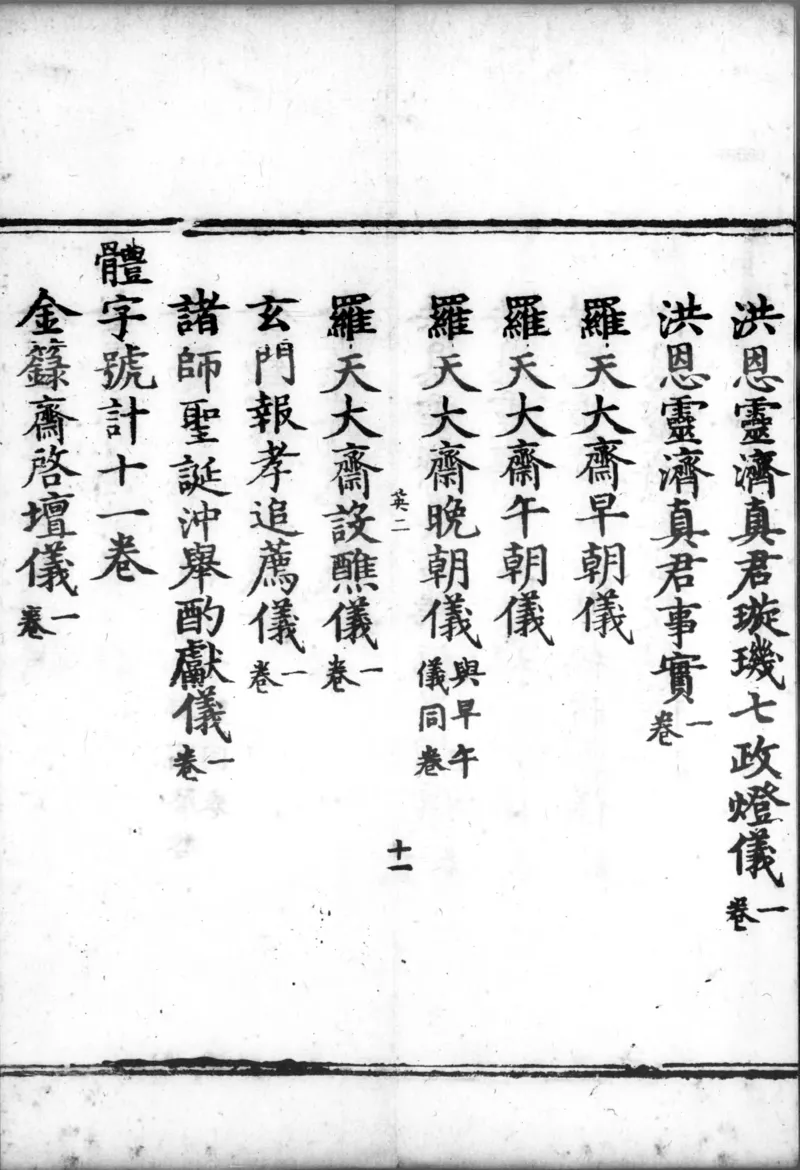 洪恩靈濟真君璇璣七政燈儀一卷
洪恩靈濟真君事實一卷
羅天大齋早朝儀
羅天大齋午朝儀
羅天大齋晚朝儀與早午儀同卷
英二
十一
羅天大齋設醮儀一卷
玄門報孝追薦儀一卷
諸師聖誕沖舉酌獻儀一卷
體字號計十一卷
金籙齋啓壇儀一卷